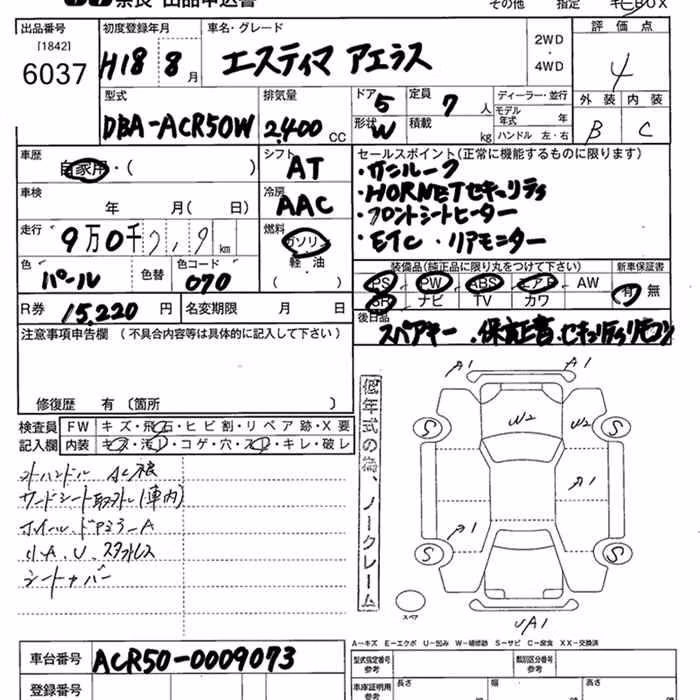 奈良 出品申込書
その他 指定 キーBOX
出品番号
[1842]
6037
初度登録年月
H18 8月
車名・グレード
エスティマ アエラス
2WD
・
4WD
評価点
4
外装 内装
B C
型式
DBA-ACR50W
排気量
2,400 CC
ドア 5
形状 W
定員 7 人
積載 kg
ディーラー・並行
モデル年式 年
ハンドル 左・右
車歴
自家用・( )
車検
年 月( 日)
走行
9万0千 km
色
パール
色替
色コード
070
R券 15,220円
名変期限 月 日
シフト
AT
冷房
AAC
燃料
ガソリン
軽・油
セールスポイント(正常に機能するものに限ります)
・サンルーフ
・HORNETセキュリティ
・フロントシートヒーター
・ETC ・リアモニター
装備品(純正品に限り丸をつけて下さい)
PS PW ABS エアB AW
SR ナビ TV カワ
新車保証書
有 無
後日品
スペアキー ・保証書・セキュリティリモコン
注意事項申告欄 (不具合内容等は具体的に記入して下さい)
修復歴 有 〔箇所 〕
検査員記入欄
FW キズ・飛石・ヒビ割・リペア跡・X要
内装 キズ・汚れ・コゲ・穴・スレ・キレ・破レ
サードシート取外し(車内)
ホイール、ドアミラーA
小A、U、スリキズ
シートカバー
低年式の為、ノークレーム
A1 A1
W2 W2
S S
A1
A1
S S
UA1
スペア
A-キズ E-エクボ U-凹み W-補修跡 S-サビ C-腐食 XX-交換済
車台番号 ACR50-0009073
登録番号
型式指定番号
参考
類別区分番号
参考
車庫証明用
参考
長さ 幅 高さ